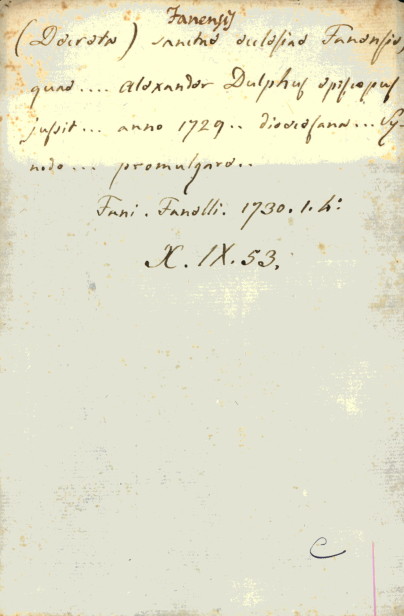 Fanensis
(Decreta) sanctae ecclesiae Fanensis,
quae.... Alexander Dulphus episcopus
jussit... anno 1729.. dioecesana... Sy-
nodo... promulgare..
Fani. Fanelli. 1730. 1. h:
X. IX. 53.
C